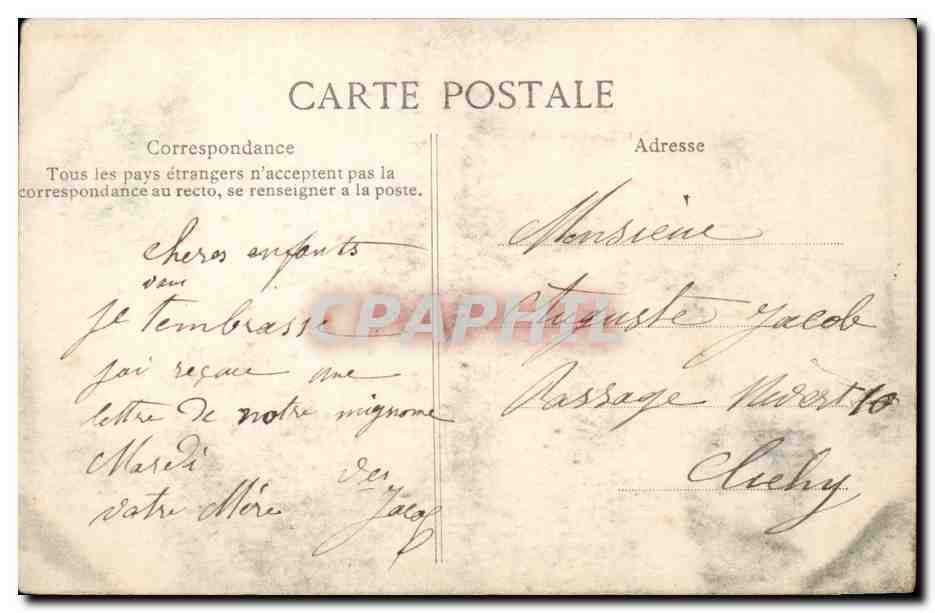 CARTE POSTALE
Correspondance
Tous les pays étrangers n'acceptent pas la
correspondance au recto, se renseigner a la poste.
cheres enfants
je t'embrasse
jai reçue une
lettre de notre mignonne
Mardi
votre Mére Jacob
Adresse
Monsieur
Auguste Jacob
Passage 10
Clichy
CPAPHIL